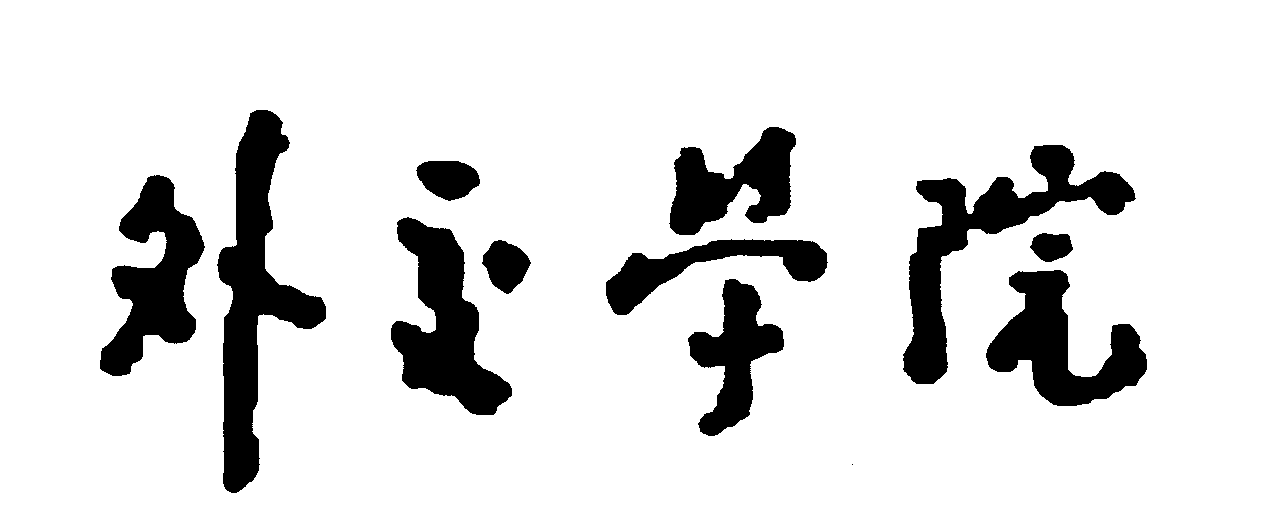 外交学院